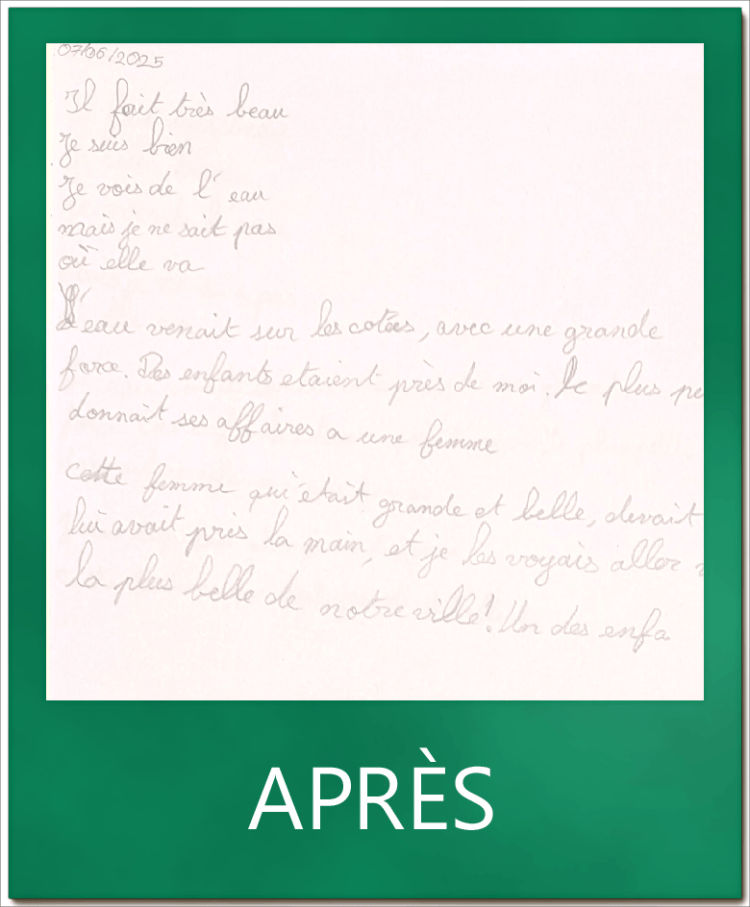 07/06/2025
Il fait très beau
Je suis bien
Je vois de l'eau
mais je ne sait pas
où elle va
L'eau venait sur les cotées, avec une grande
force. Des enfants etaient près de moi. Le plus pe
donnait ses affaires a une femme
Cette femme qui était grande et belle, devait
lui avait pris la main, et je les voyais aller
la plus belle de notre ville! Un des enfa
APRÈS